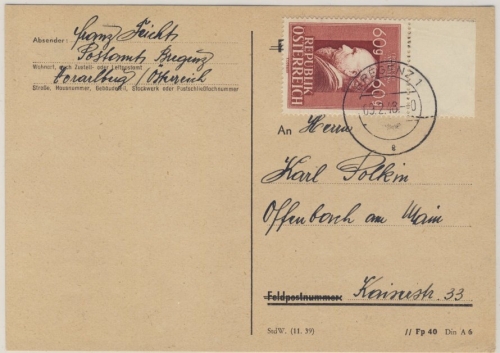 Absender: Franz Feichts
Postamt Bregenz
Wohnort, auch Zustell- oder Leitpostamt
Vorarlberg / Österreich
Straße, Hausnummer, Gebäudeteil, Stockwerk oder Postschließfachnummer
60g
60g
REPUBLIK
ÖSTERREICH
BREGENZ 1
e
An Herrn
Karl Polkin
Offenbach am Main
Feldpostnummer: Kaiserstr. 33
StdW. (11. 39)
// Fp 40 Din A 6